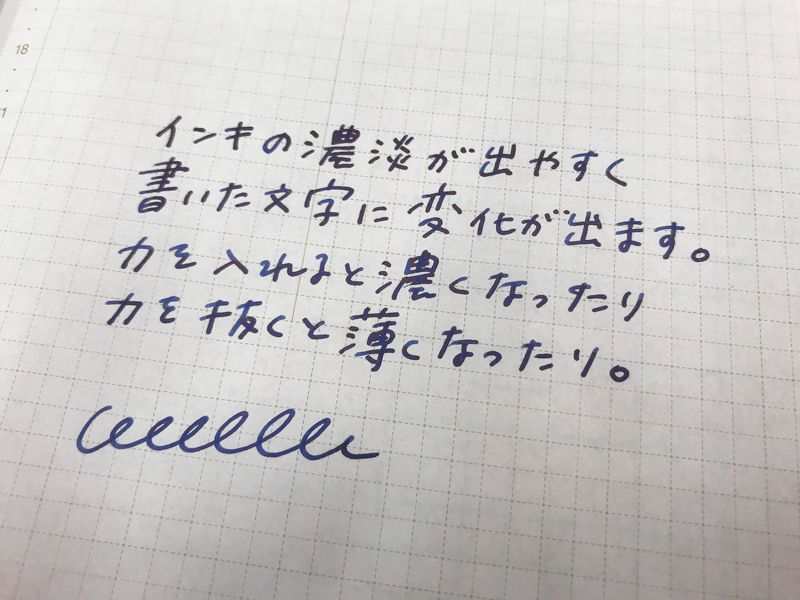 18
21
インキの濃淡が出やすく
書いた文字に変化が出ます。
力を入れると濃くなったり
力を抜くと薄くなったり。